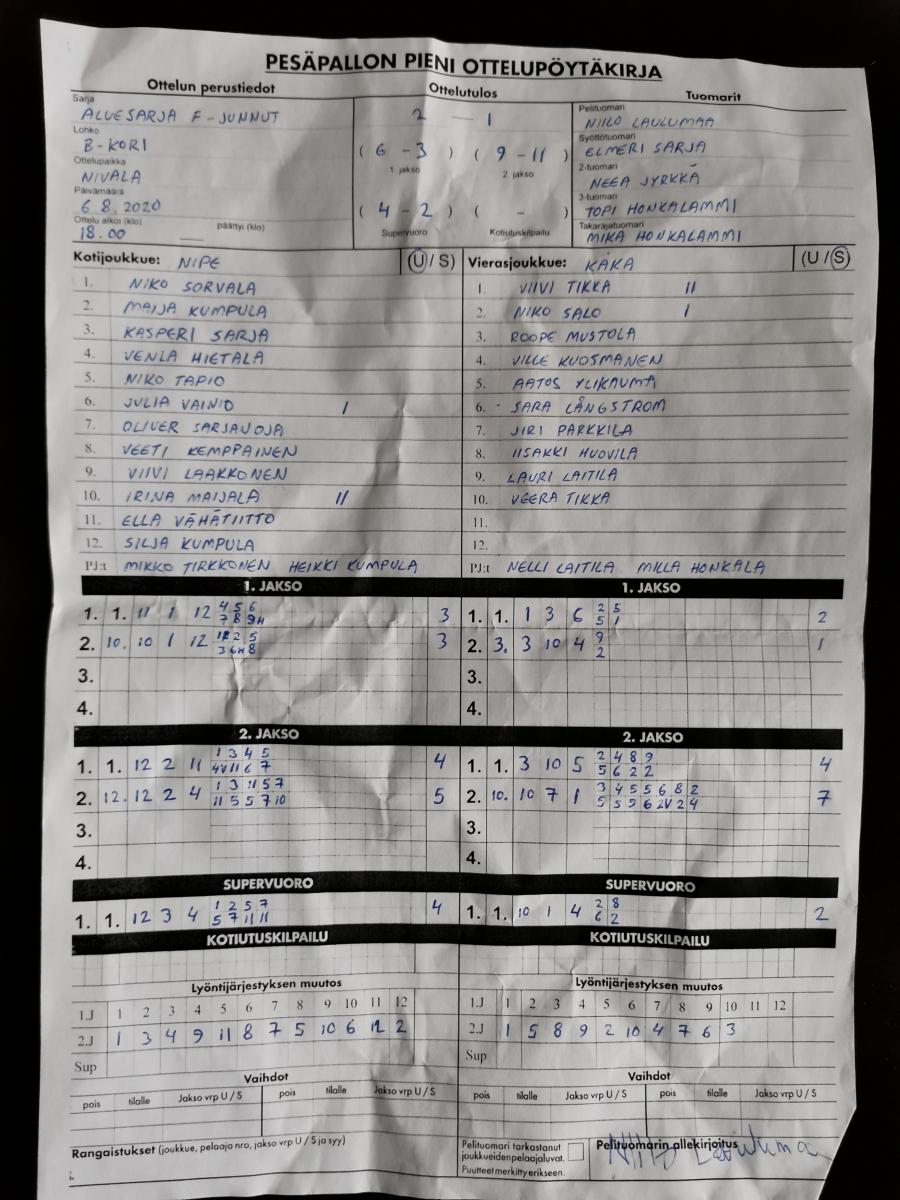 PESÄPALLON PIENI OTTELUPÖYTÄKIRJA
Ottelun perustiedot Ottelutulos Tuomarit
Sarja
ALUESARJA F-JUNNUT
Lohko
B-KORI
Ottelupaikka
NIVALA
Päivämäärä
6.8.2020
Ottelu alkoi (klo) päättyi (klo)
18.00
2 — 1
( 6 - 3 ) ( 9 - 11 )
1. jakso 2. jakso
( 4 - 2 ) ( - )
Supervuoro Kotiutuskilpailu
Pelituomari
NIILO LAULUMAA
Syöttötuomari
ELMERI SARJA
2-tuomari
NEEA JYRKKÄ
3-tuomari
TOPI HONKALAMMI
Takarajatuomari
MIKA HONKALAMMI
Kotijoukkue: NIPE (U / S)
1. NIKO SORVALA
2. MAIJA KUMPULA
3. KASPERI SARJA
4. VENLA HIETALA
5. NIKO TAPIO
6. JULIA VAINIO I
7. OLIVER SARJAUOJA
8. VEETI KEMPPAINEN
9. VIIVI LAAKKONEN
10. IRINA MAIJALA II
11. ELLA VÄHÄTIITTO
12. SILJA KUMPULA
PJ:t MIKKO TIRKKONEN HEIKKI KUMPULA
Vierasjoukkue: KÄKA (U / S)
1. VIIVI TIKKA II
2. NIKO SALO I
3. ROOPE MUSTOLA
4. VILLE KUOSMANEN
5. AATOS YLIKAUMA
6. SARA LÅNGSTROM
7. JIRI PARKKILA
8. IISAKKI HUOVILA
9. LAURI LAITILA
10. VEERA TIKKA
11.
12.
PJ:t NELLI LAITILA MILLA HONKALA
1. JAKSO
1. 1. 11 1 12 4 5 6 3
7 8 9H
2. 10. 10 1 12 2 5 3
3 6H 8
3.
4.
1. JAKSO
1. 1. 1 3 6 2 5 2
5 1
2. 3. 3 10 4 9 1
2
3.
4.
2. JAKSO
1. 1. 12 2 11 1 3 4 5 4
4V 11 6 7
2. 12. 12 2 4 1 3 11 5 7 5
11 5 5 7 10
3.
4.
2. JAKSO
1. 1. 3 10 5 2 4 8 9 4
5 6 2 2
2. 10. 10 7 1 3 4 5 5 6 8 2 7
5 5 5 6 2V 2 4
3.
4.
SUPERVUORO
1. 1. 12 3 4 1 2 5 7 4
5 7 11 11
SUPERVUORO
1. 1. 10 1 4 2 8 2
6 2
KOTIUTUSKILPAILU
KOTIUTUSKILPAILU
Lyöntijärjestyksen muutos
1.J 1 2 3 4 5 6 7 8 9 10 11 12
2.J 1 3 4 9 11 8 7 5 10 6 12 2
Sup
Lyöntijärjestyksen muutos
1.J 1 2 3 4 5 6 7 8 9 10 11 12
2.J 1 5 8 9 2 10 4 7 6 3
Sup
Vaihdot
pois tilalle Jakso vrp U / S pois tilalle Jakso vrp U / S
Vaihdot
pois tilalle Jakso vrp U / S pois tilalle Jakso vrp U / S
Rangaistukset (joukkue, pelaaja nro, jakso vrp U / S ja syy)
Pelituomari tarkastanut
joukkueiden pelaajaluvat.
Puutteet merkitty erikseen.
Pelituomarin allekirjoitus